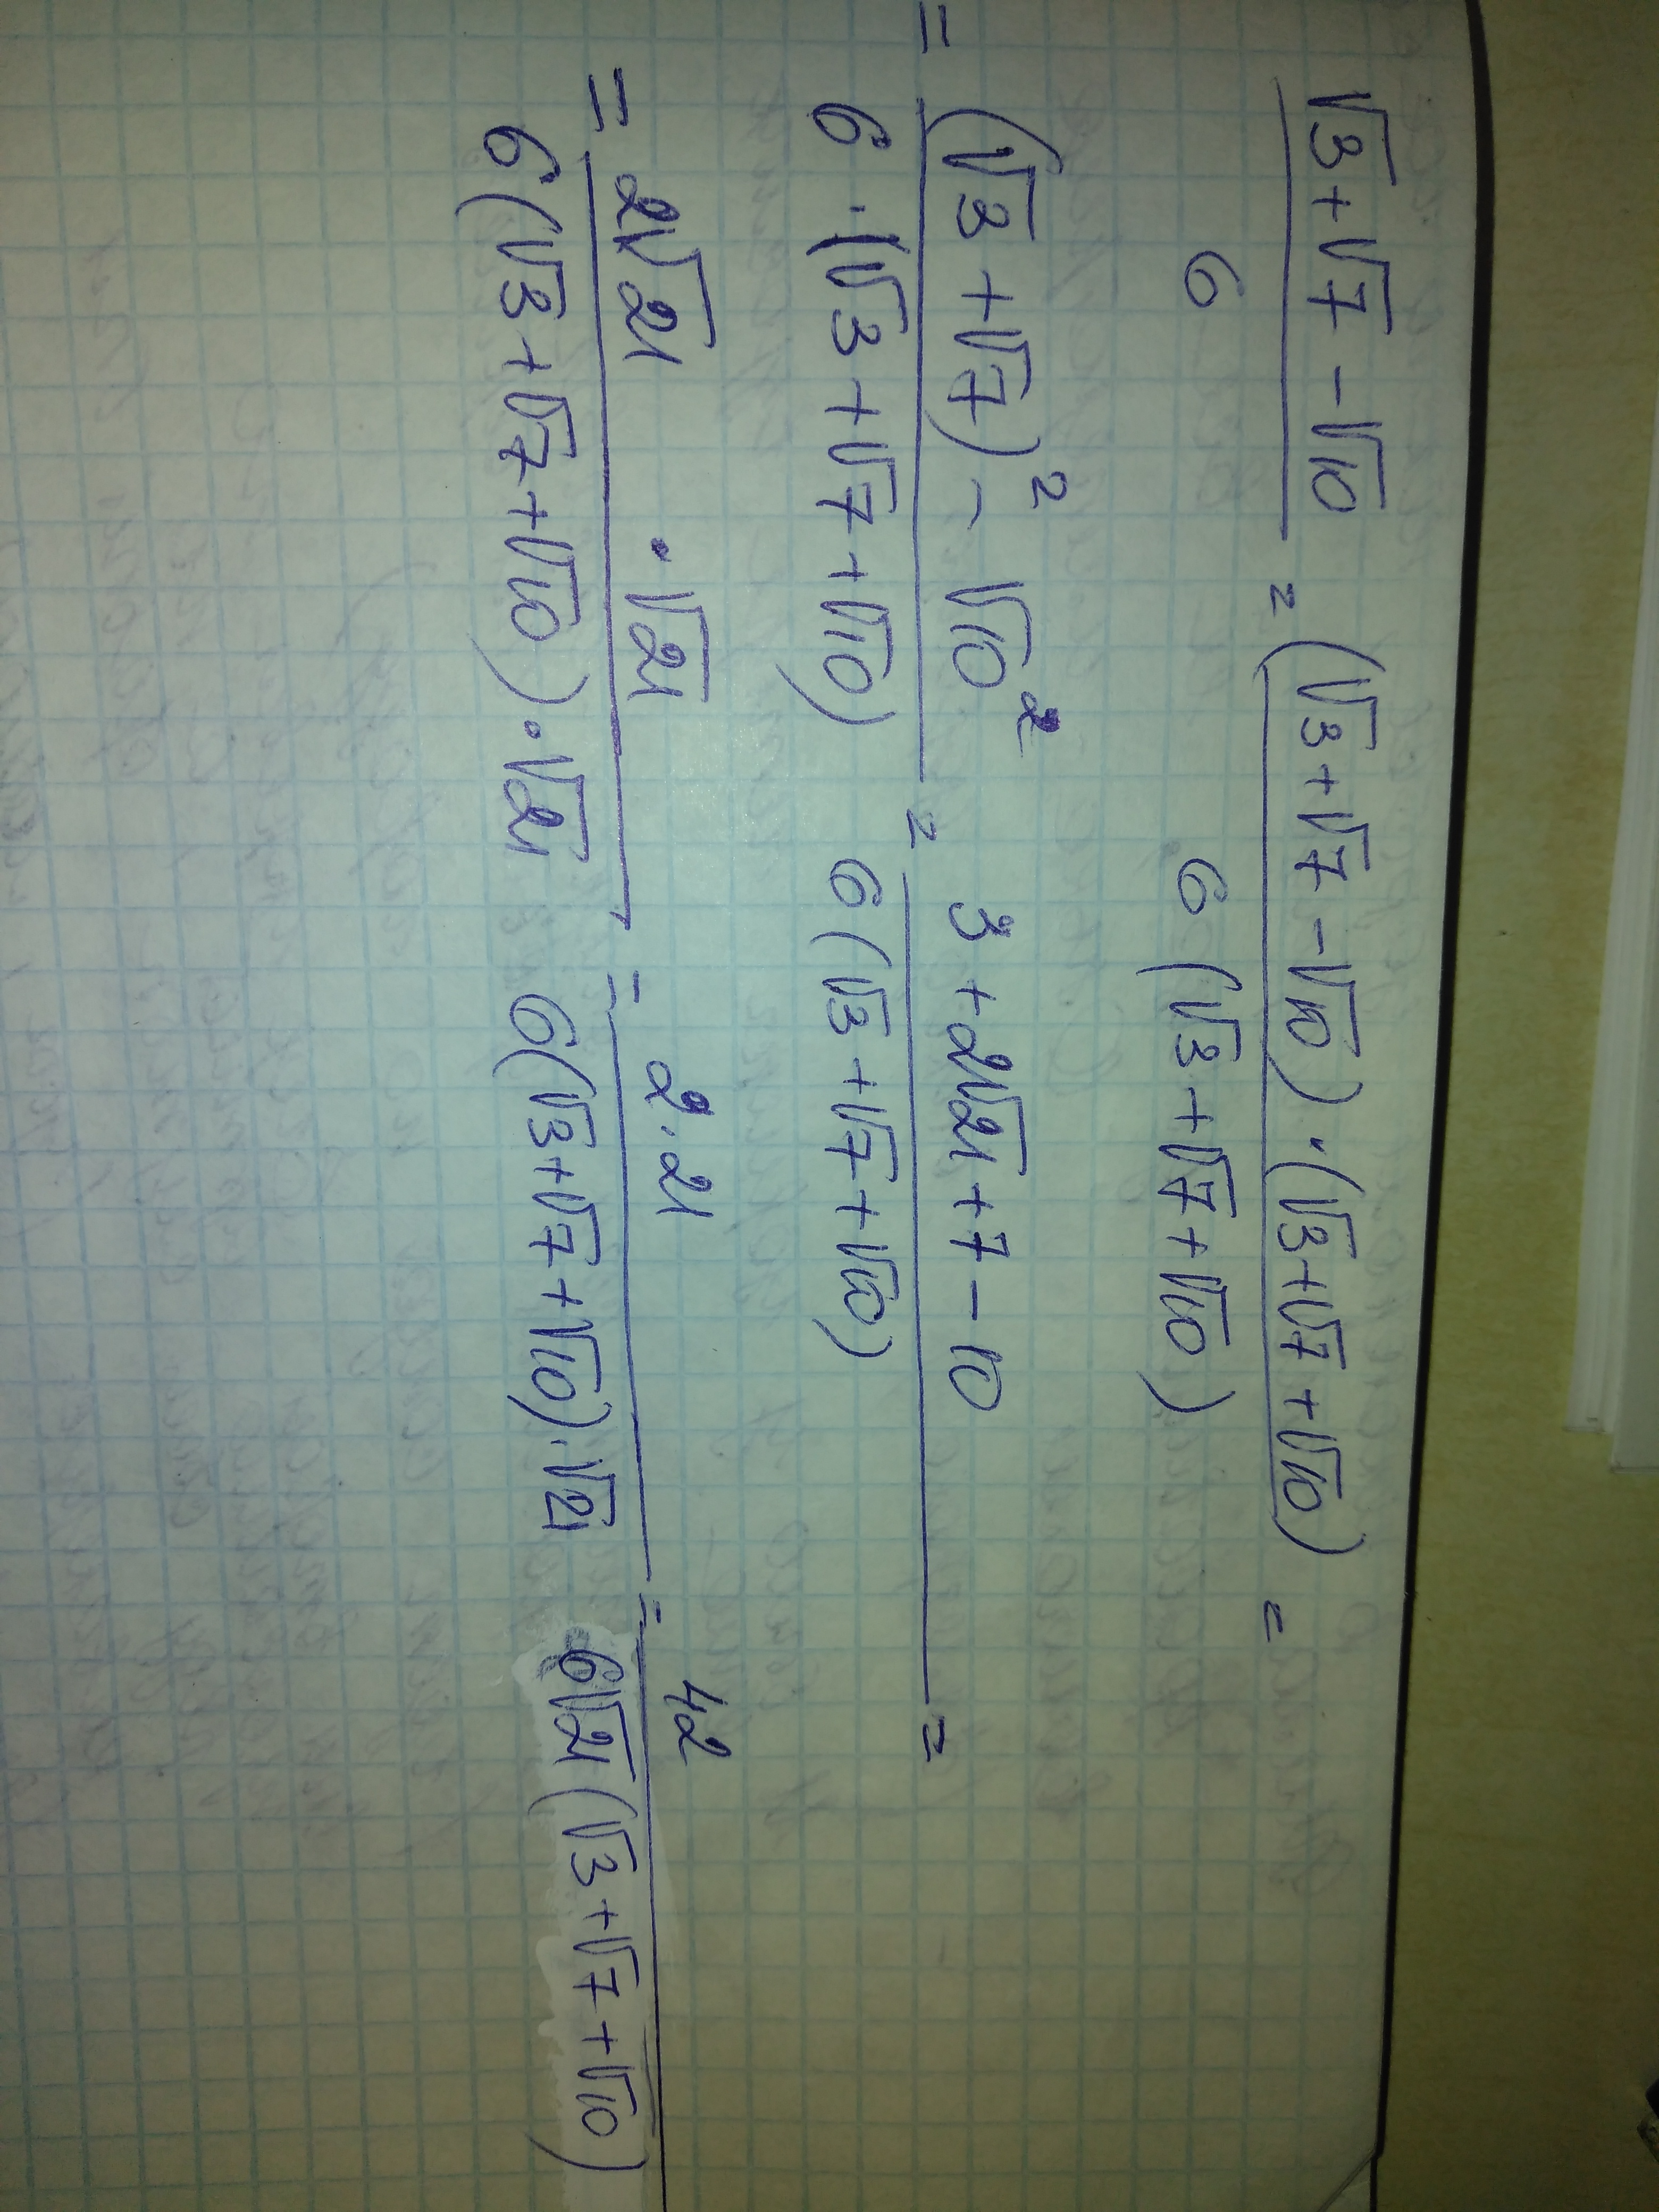 (√3+√7−√10)/6 = ((√3+√7−√10)·(√3+√7+√10))/(6(√3+√7+√10)) =
= ((√3+√7)²−√10²)/(6·(√3+√7+√10)) = (3+2√21+7−10)/(6(√3+√7+√10)) =
= (2√21·√21)/(6(√3+√7+√10)·√21) = (2·21)/(6(√3+√7+√10)·√21) = 42/(6√21(√3+√7+√10))